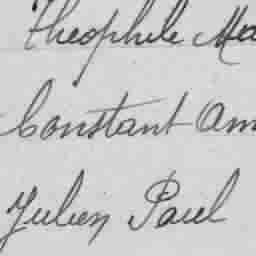 Théophile Ma
Constant Am
Julien Paul